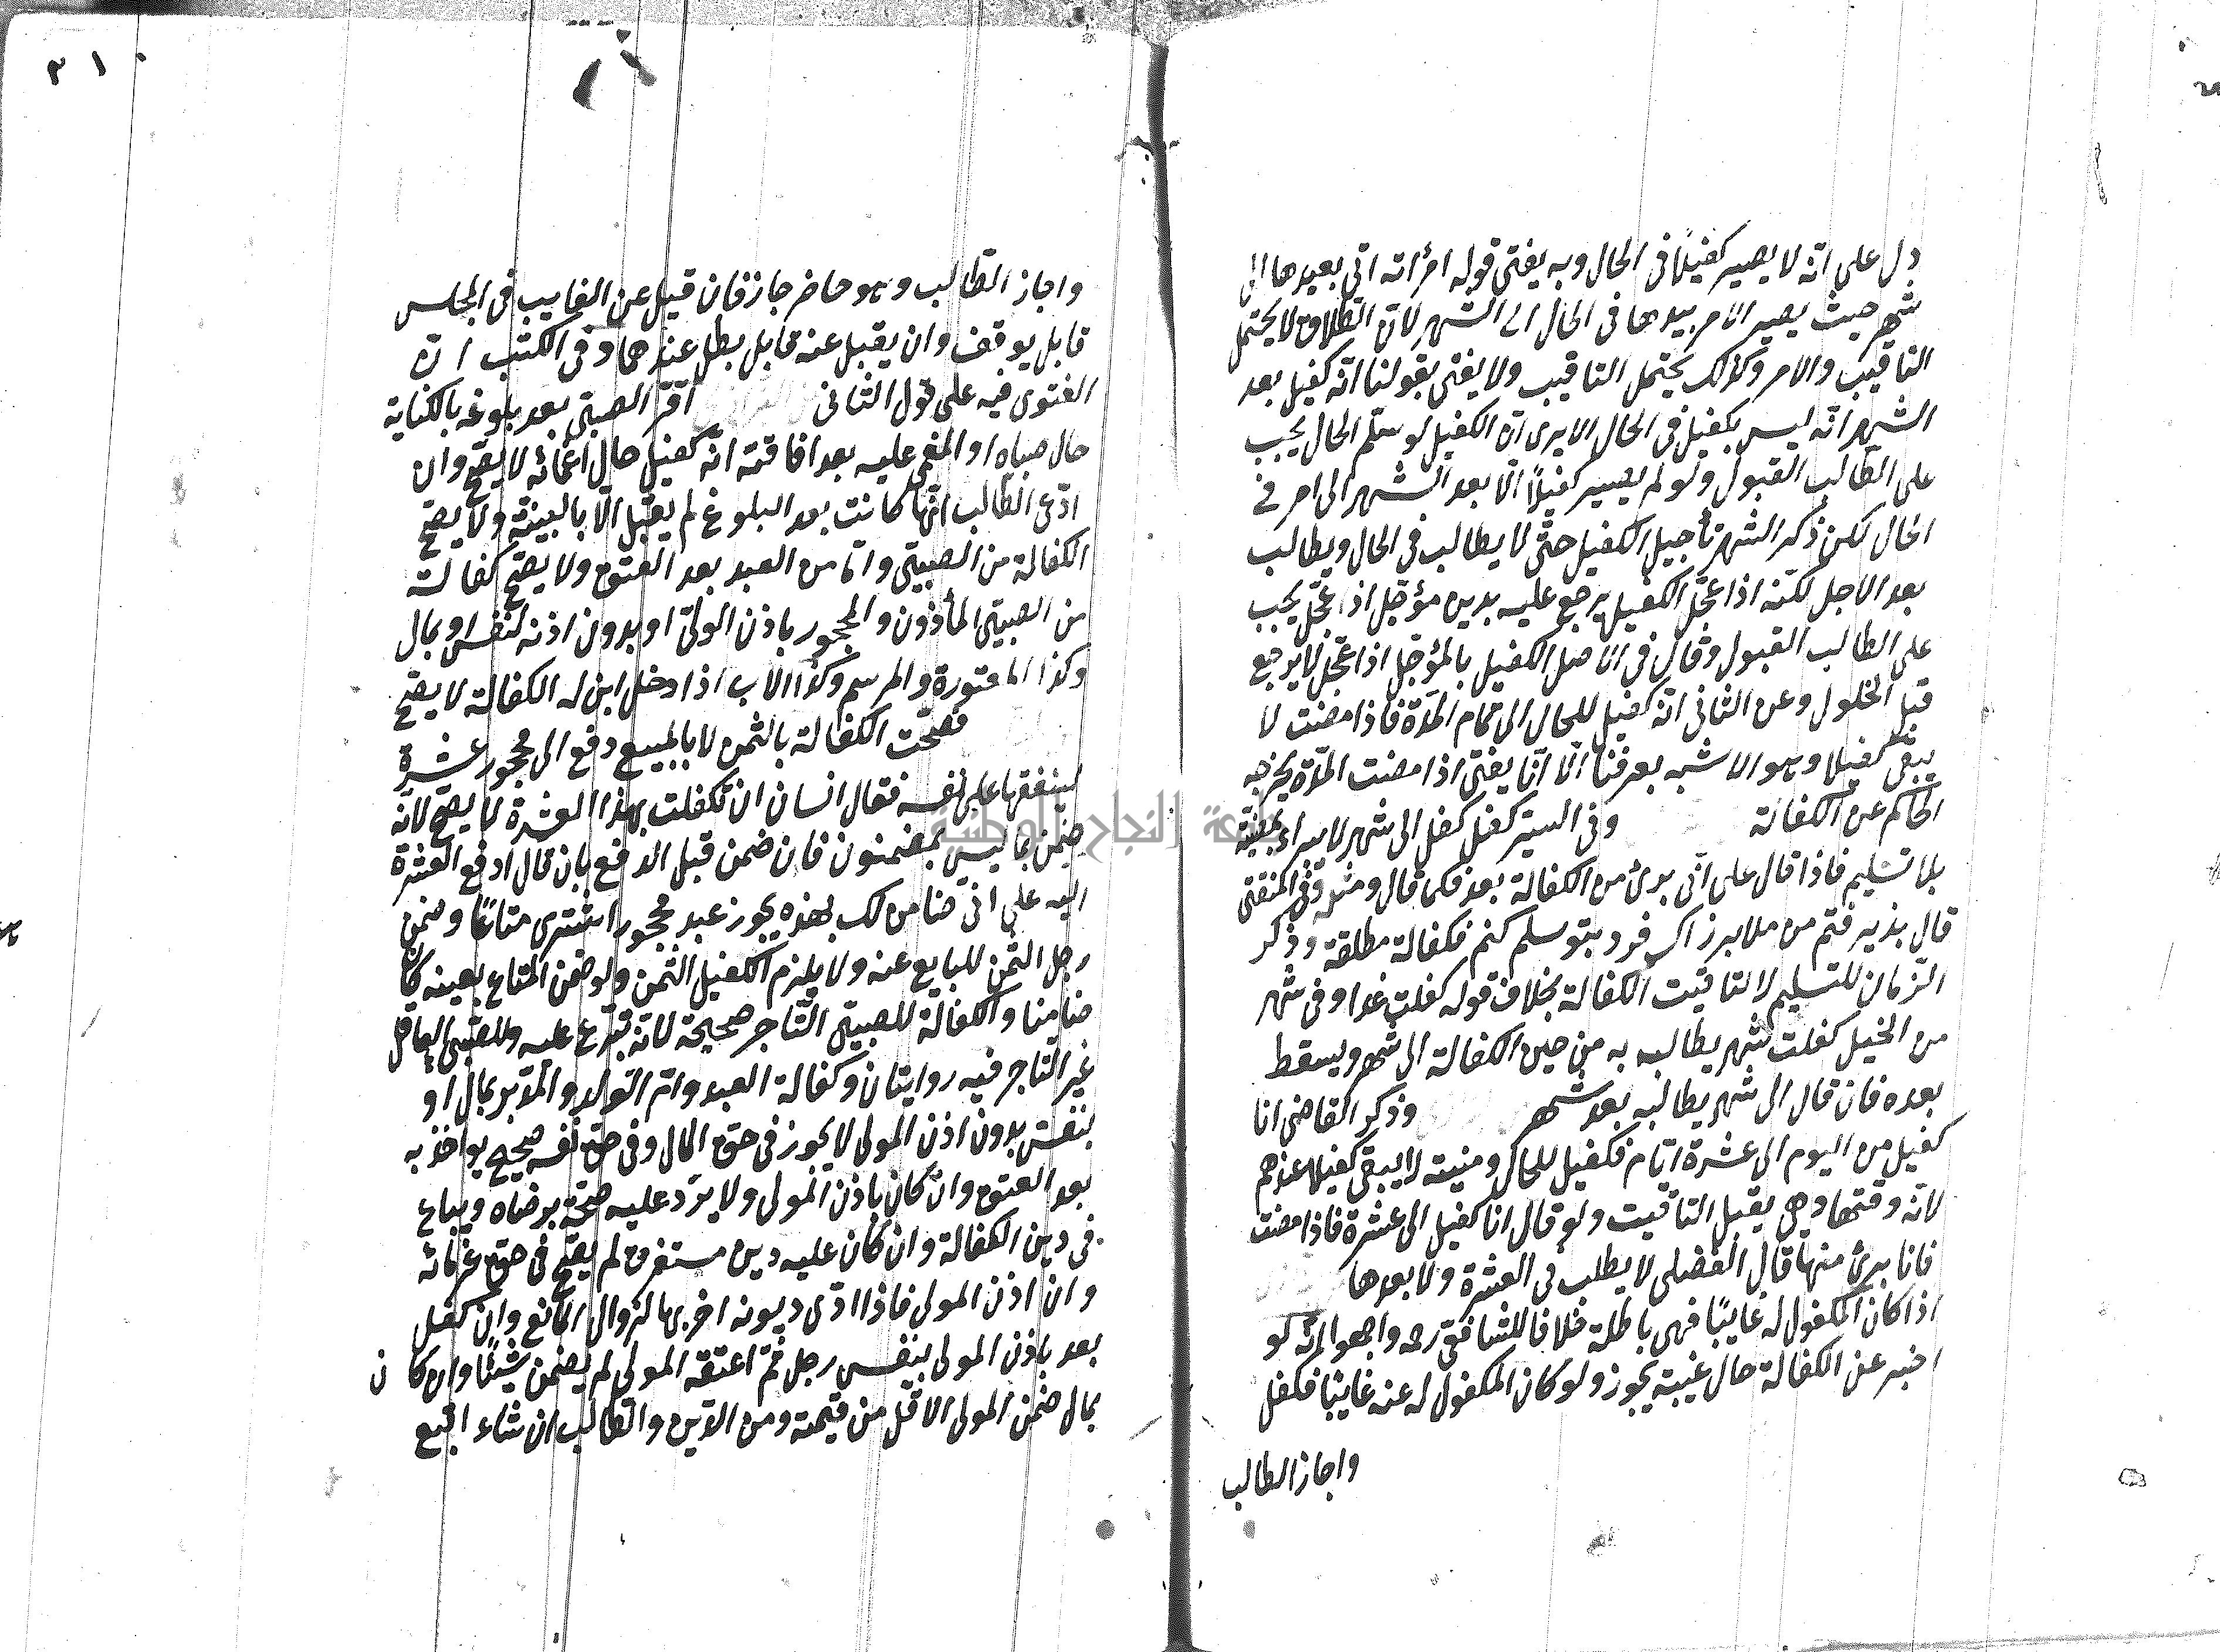 دل على انّه لا يصير كفيلاً فى الحال وبه يفتى قوله امرأته اتى بعيدها الى
شهر حيث يصير الامر بيدها فى الحال الى الشهر لانّ الطلاق لا يحتمل
التاقيت والامر وكذلك يحتمل التاقيت ولا يفتى بقولنا انّه كفيل بعد
الشهر انّه ليس بكفيل فى الحال الا يرى انّ الكفيل لو سلّم الحال يجب
على الطّالب القبول ولو لم يصير كفيلاً الّا بعد الشهر الى امر فى
الحال لكن ذكر الشهر تأجيل الكفيل حتّى لا يطالب فى الحال ويطالب
بعد الاجل لكنّه اذا عجّل الكفيل يرجع عليه بدين مؤجّل اذا عجّل يجب
على الطالب القبول وقال فى الاصل الكفيل بالمؤجّل اذا عجّل لا يرجع
قبل الحلول وعن الثانى انّه كفيل للحال الى تمام المدّة فاذا مضت لا
يبقى كفيلا وهو الاشبه بعرفنا الّا انّا يفتى اذا مضت المدّة يخرجه
الحاكم عن الكفالة وفى السير كفيل كفل الى شهر لا يبراء بمضيّه
بلا تسليم فاذا قال على انّى برئ من الكفالة بعد فكما قال ومثله فى المنتقى
قال بذيرفتم من ملا برز اكر فرد بتو سلم كنم فكفالة مطلقة وذكر
الزمان للتسليم لا لتاقيت الكفالة بخلاف قوله كفلت غدا وفى شهر
من الخيل كفلت شهر يطالبه به من حين الكفالة الى شهر ويسقط
بعده فان قال الى شهر يطالبه بعد شهر وذكر القاضى انا
كفيل من اليوم الى عشرة ايّام فكفيل للحال ومنيته لا يبقى كفيلا عندهم
لانّه وقتها وهى يقبل التاقيت ولو قال انا كفيل الى عشرة فاذا مضت
فانا برئ منها قال الفضلى لا يطلب فى العشرة ولا بعدها
اذا كان المكفول له غايبًا فهى باطلة خلافا للشافعى رحمه واجمعوا انّه لو
اخبر عن الكفالة حال غيبته يجوز ولو كان المكفول له عنه غايبًا فكفل
واجاز الطالب
٣١٠
واجاز الطّالب وهو حاضر جاز فان قيل عن الغايب فى المجلس
قابل يوقف وان يقبل عنه قابل بطل عندهما وفى الكتب انّ
الفتوى فيه على قول الثانى اقرّ الصبىّ بعد بلوغه بالكفاية
حال صباه او المغمى عليه بعد افاقته انّه كفيل حال اغمائه لا يصحّ وان
ادّعى الطّالب انّها كانت بعد البلوغ لم يقبل الّا بالبيّنة ولا يصحّ
الكفالة من الصبىّ وامّا من العبد بعد العتق ولا يصحّ كفالته
من الصبىّ المأذون والمحجور باذن الولىّ او بدون اذنه لنفس او بمال
وكذا المعتوه والمرسم وكذا الاب اذا دخل ابن له الكفالة لا يصحّ
فصحّت الكفالة بالثمن لا بالمبيع دفع الى محجور عشرة
لينفقها على نفسه فقال انسان ان تكفلت بهذا العشرة لا يصحّ لانّه
ضمن بما ليس بمضمون فان ضمن قبل الدفع بان قال ادفع العشرة
اليه على انّى ضامن لك بهذه يجوز عبد محجور اشترى متاعًا وضمن
رجل الثمن للبايع عنه ولا يلزم الكفيل الثمن ولو ضمن المتاع بعينه كان
ضامنا والكفالة للصبىّ التّاجر صحيحة لانّه تبرّع عليه وللصبىّ العاقل
غير التّاجر فيه روايتان وكفالة العبد وامّ الولد والمدّبر بمال او
بنفس بدون اذن المولى لا يجوز فى حق المال وفى حق نفسه صحيح يواخذ به
بعد العتق وان كان باذن المولى ولا يردّ عليه صحّة برضاه ويباع
فى دين الكفالة وان كان عليه دين مستغرق لم يصحّ فى حق غرمائه
وان اذن المولى فاذا ادّى ديونه اخر بها لزوال المانع وان كفل
بعد باذن المولى بنفس رجل ثمّ اعتقه المولى لم يضمن شيئًا وان كان
بمال ضمن المولى الاقل من قيمته ومن الدّين والطّالب ان شاء اتبع